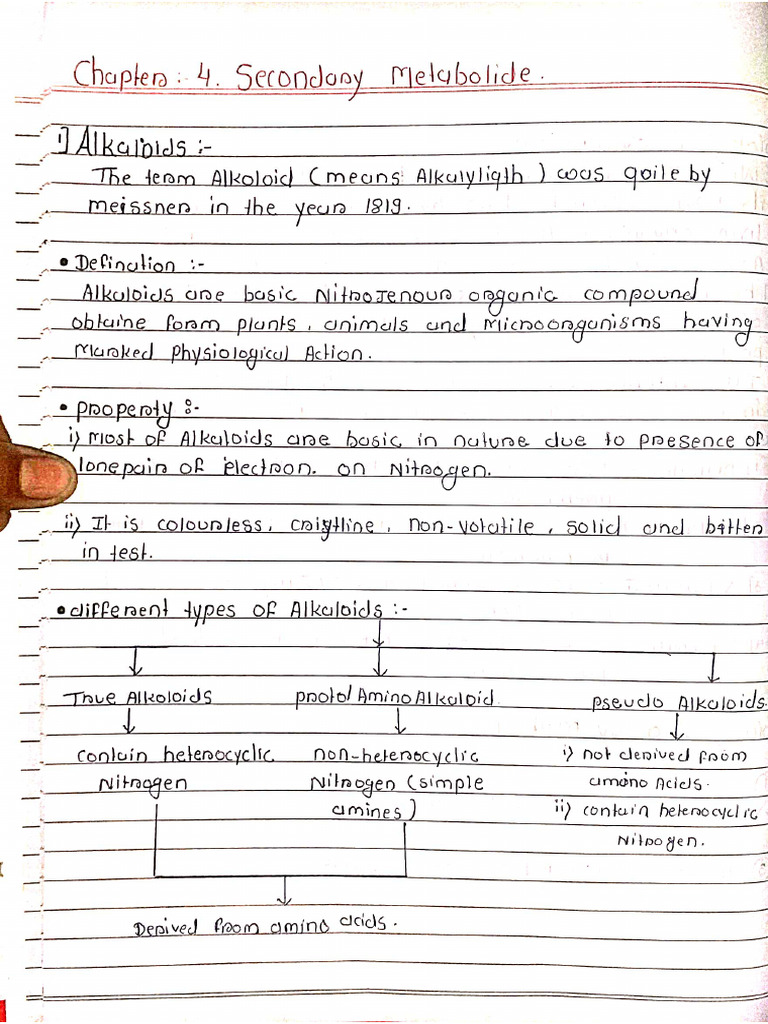 Chapters :- 4. Secondary Metabolide.
1] Alkaloids :-
The term Alkoloid (means Alkalyligth) was goile by
meissner in the years 1819.
• Defination :-
Alkaloids are basic Nitrojenour organic compound
obtaine form plants, animals and microorganisms having
Marked physiological Action.
• property :-
i) most of Alkaloids are basic in nature due to presence of
lonepair of electron. on Nitrogen.
ii) It is colourless, craigtline, non-volatile, solid and bitter
in test.
• different types of Alkaloids :-
True Alkoloids proto/Amino Alkaloid. pseudo Alkaloids.
contain heterocyclic non-heterocyclic i) not derived from
Nitrogen Nitrogen (simple amino Acids.
amines) ii) contain heterocyclic
Nitrogen.
Derived from amino acids.